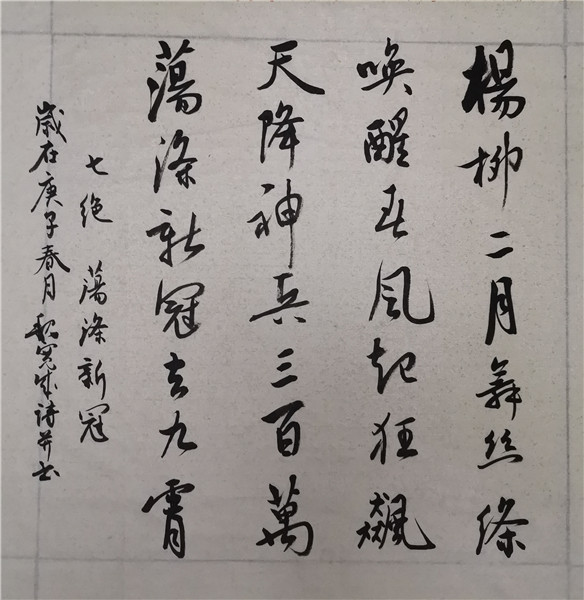 楊柳二月舞丝條
喚醒春風起狂飆
天降神兵三百萬
蕩滌新冠去九霄
七绝 蕩滌新冠
歲在庚子春月 寛成詩并书